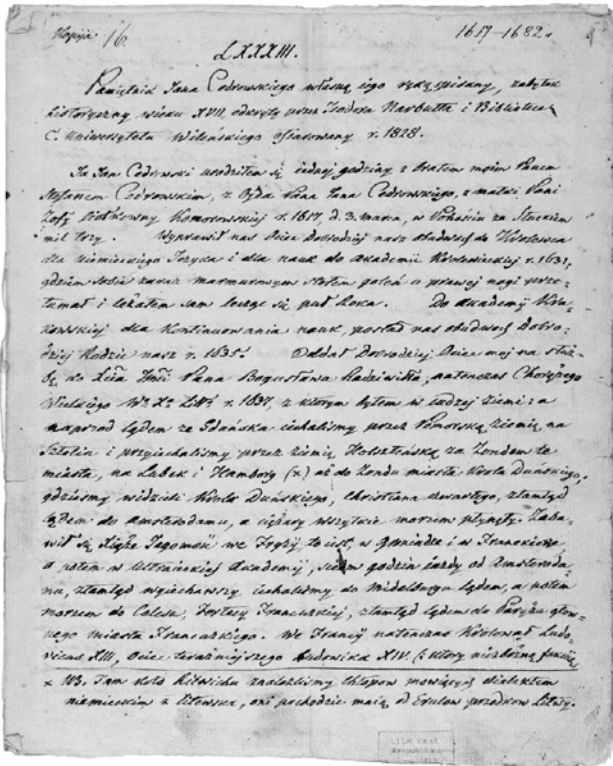 Kopija 16.
1617–1682.
LXXXIII.
Pamiętnik Jana Cedrowskiego własną iego ręką spisany, zabytek
historyczny wieku XVII, odkryty przez Teodora Narbutta i Bibliotece
C. Uniwersytetu Wileńskiego ofiarowany r. 1828.
Ja Jan Cedrowski urodziłem się iedney godziny z bratem moim Panem
Stefanem Cedrowskim, z Oyca Pana Jana Cedrowskiego, z matki Pani
Zofji Piotrowny Komorowskiej r. 1617, d. 3. marca, w Pohosciu za Słuckiem
mil trzy. Wyprawił nas Ociec Dobrodziej nasz obudwoch do Krolewca
dla niemieckiego Języka i dla nauk do Akademii Krolewieckiej r. 1631,
gdziem sobie zaraz marmurowym stołem goleń u prawej nogi prze-
łamał i leżałem sam lecząc się puł Roka. Do Akademij Kra-
kowskiej dla kontinuowania nauk, posłał nas obudwoch Dobro-
dziej Rodzic nasz r. 1635. Oddał Dobrodziej Ociec moj na służ-
bę do Pana Bogusława Radziwiłła, natenczas Chorążego
Wielkiego r. 1637, z ktorym byłem w cudzej ziemi: a
naprzod lądem ze Gdańska iechaliśmy przez Pomorską ziemię na
Sztolin i przyiechaliśmy przez ziemię Holszteńską za Zondem te
miasta, na Lubek i Hamborg (x) aż do Zondu miasta Krola Duńskiego,
gdzieśmy widzieli Krola Duńskiego, Christiana czwartego, ztamtąd
lądem do Amsterdamu, a ciężary wszytkie morzem płynęły. Zaba-
wił się Xiąże Jegomość we Fryzij, to iest, w Gronindze i w Franekierze,
a potem w Ultraickiej Akademij, siedm godzin iazdy od Amsterda-
mu, ztamtąd wyiechawszy iechaliśmy do Midelburga lądem, a potem
morzem do Calesu, Fortecy Francuzkiej, ztamtąd lądem do Paryża głow-
nego miasta Francuskiego. We Francij natenczas Krolował Ludo-
vicus XIII, Ociec teraźniejszego Ludowika XIV. (: ktory niezbożną
x NB. Tam koło znaleźliśmy chłopow mowiących dialektem
niemieckim z litewska, oni pochodzić maią od Exulow przodkow Litwy.